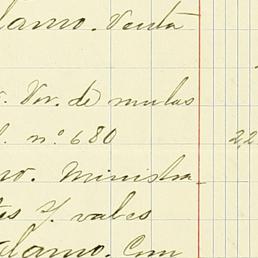 alamo. Venta
r. Vor. de mulas
l. nº 680 2,2
no. Ministra-
tes y vales
alamo. Com